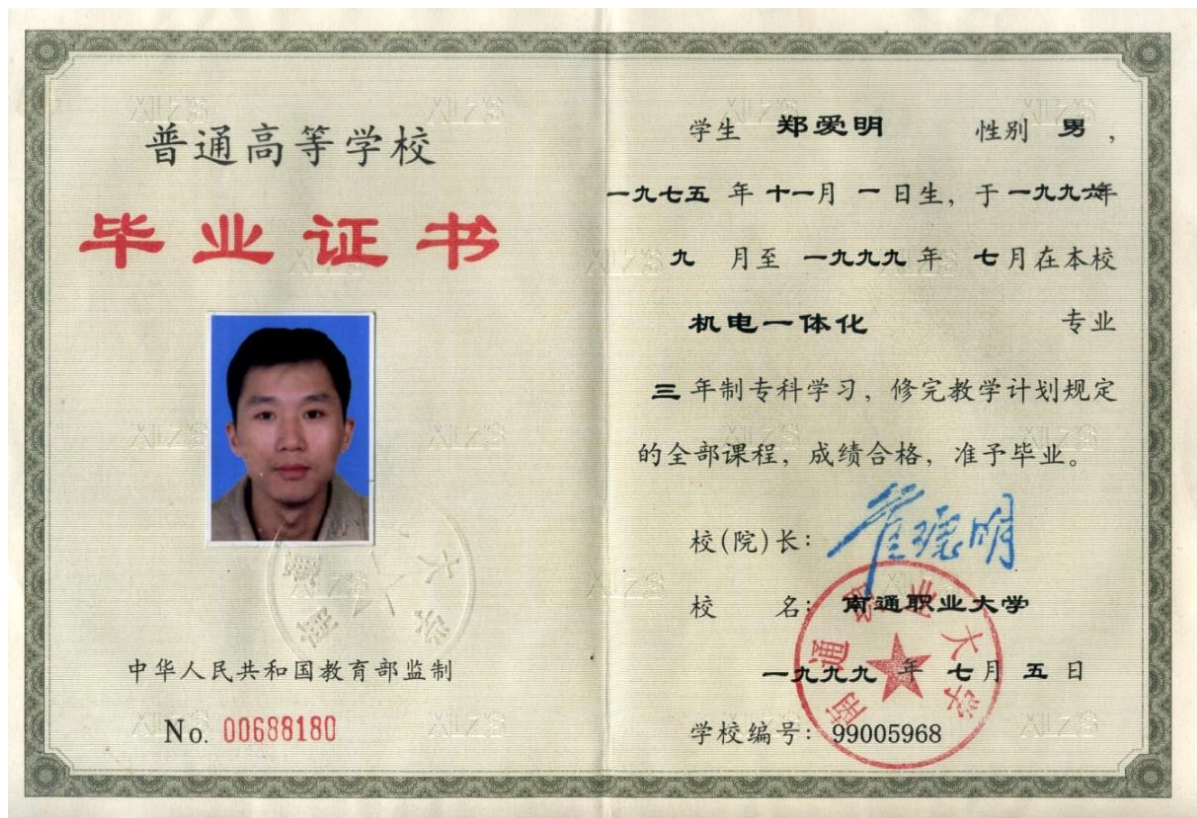 普通高等学校
毕业证书
中华人民共和国教育部监制
No. 00688180
学生 郑爱明 性别 男，
一九七五 年 十一月 一 日生，于 一九九六年
九 月至 一九九九 年 七月在本校
机电一体化 专业
三 年制专科学习，修完教学计划规定
的全部课程，成绩合格，准予毕业。
校(院)长： 崔德明
校 名： 南通职业大学
一九九九 年 七月 五 日
学校编号： 99005968
南通职业大学
XLZS